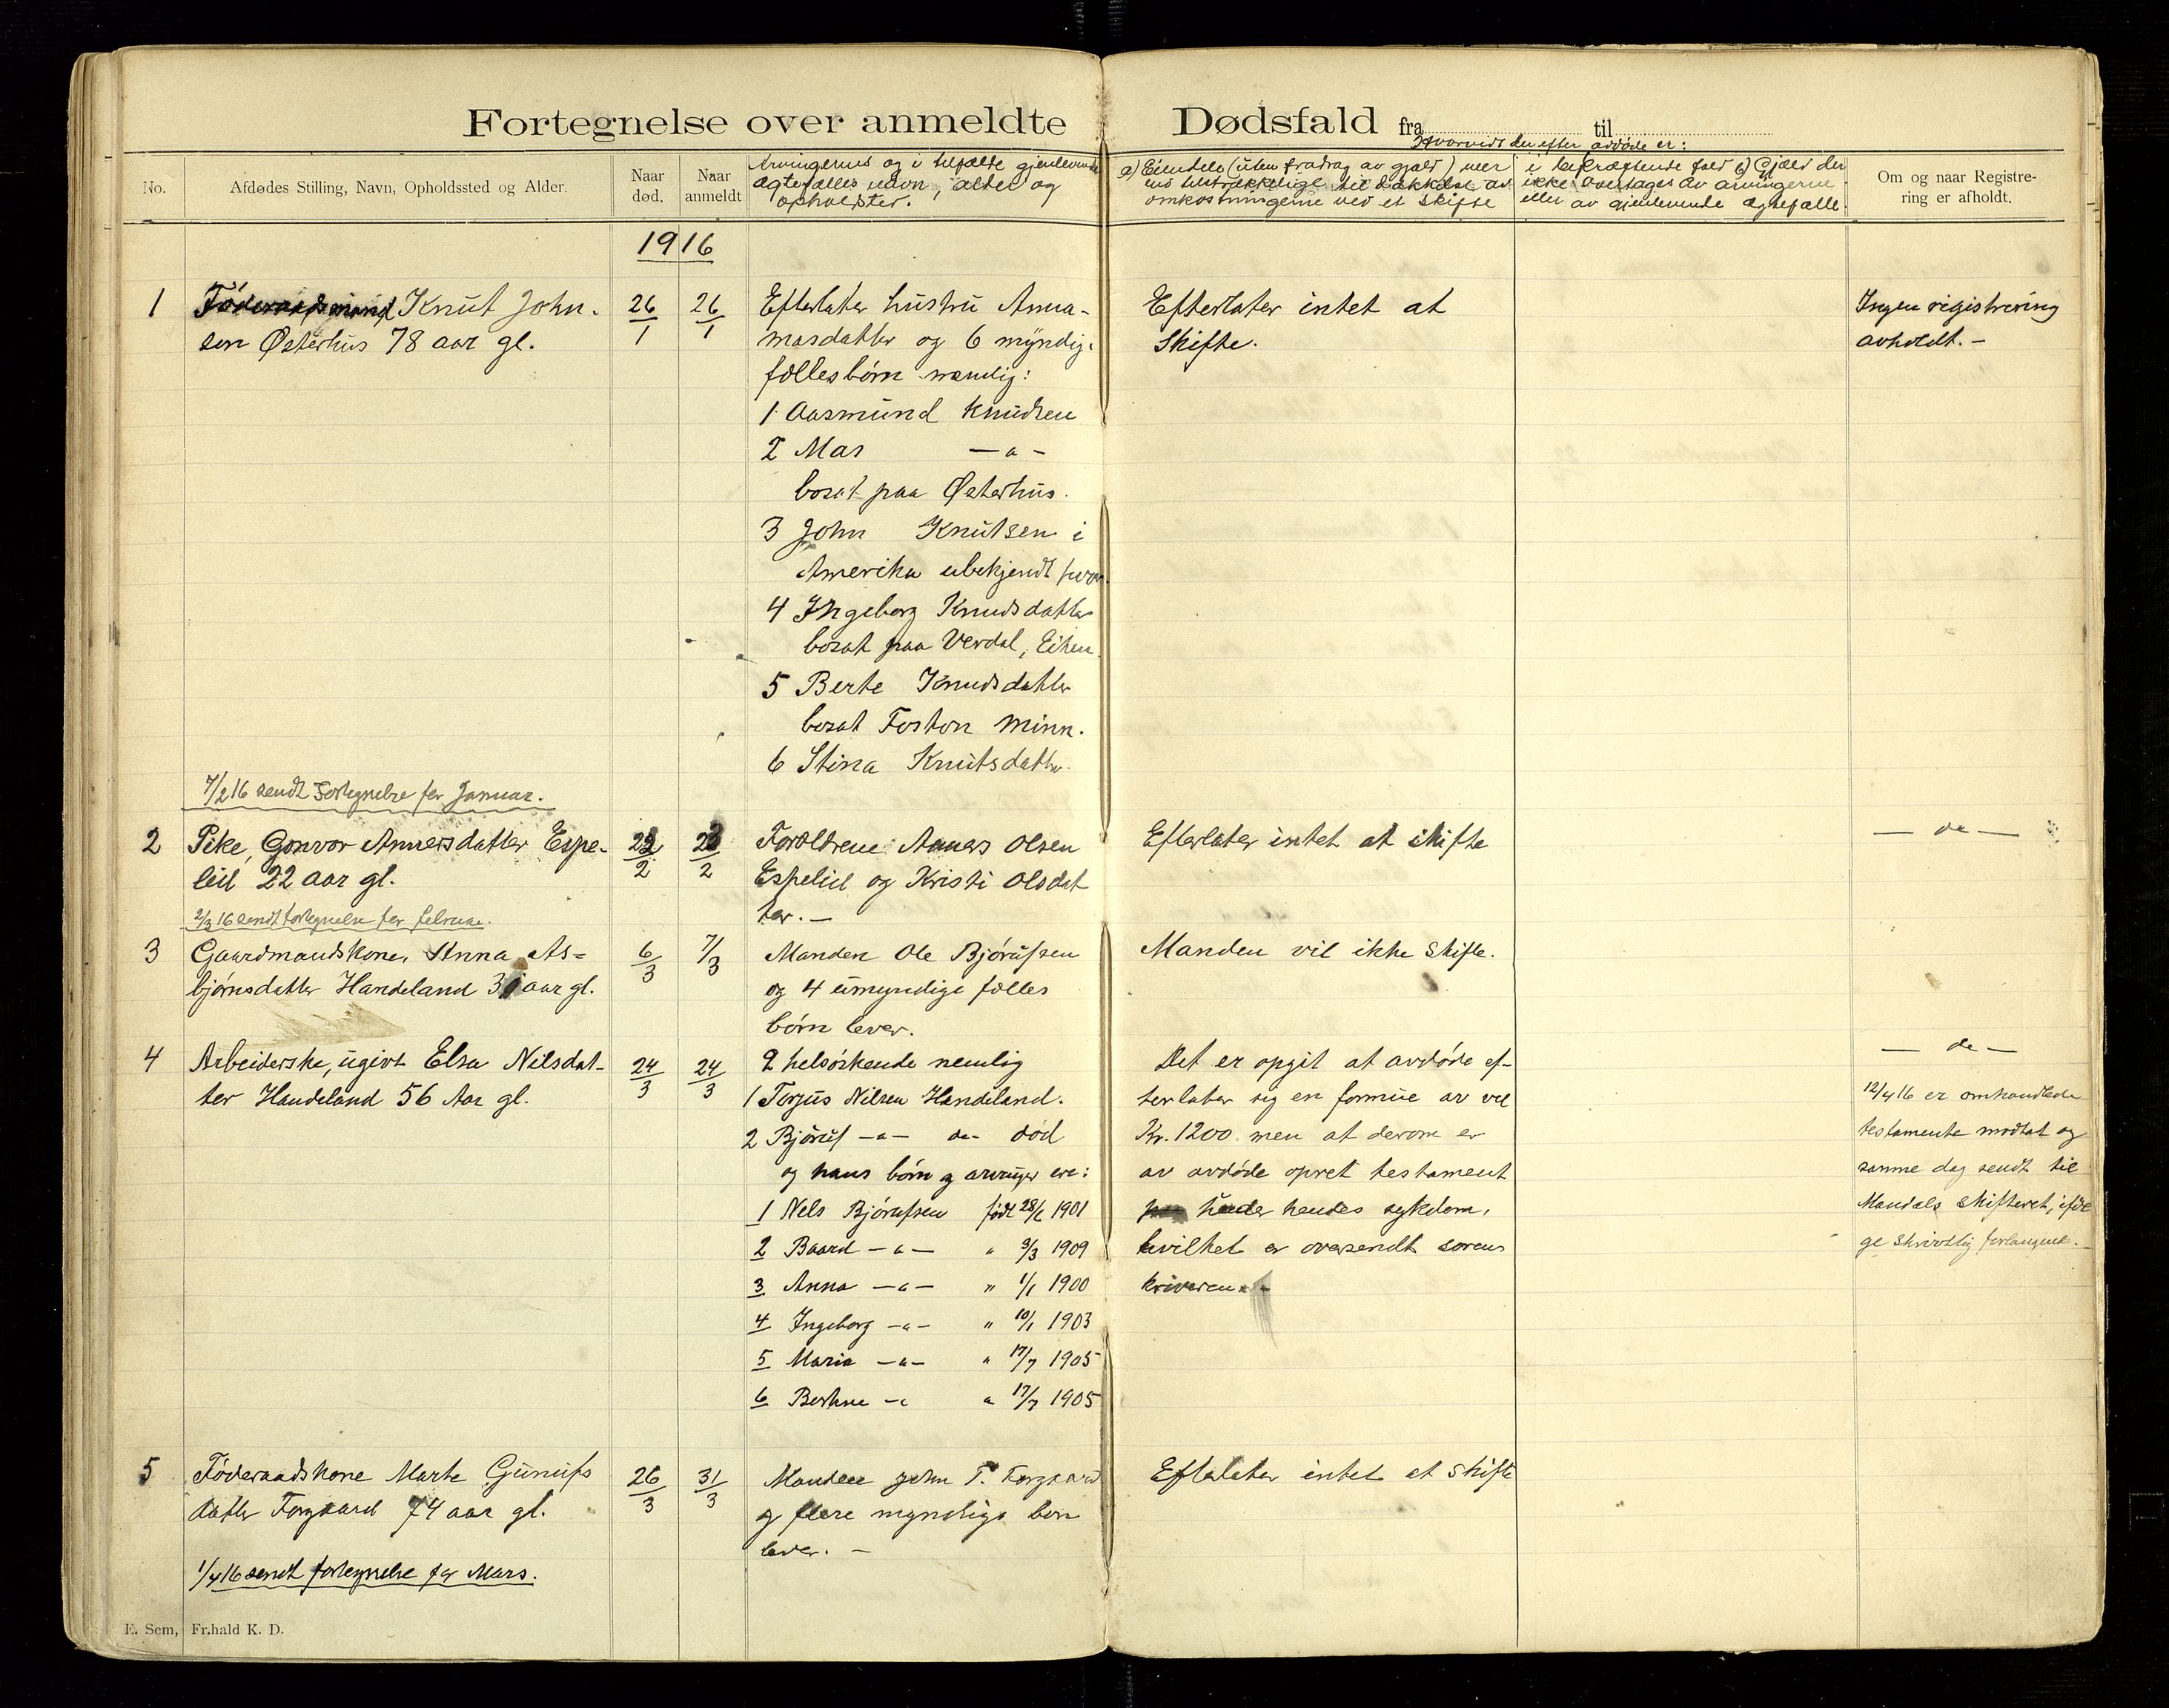 Fortegnelse over anmeldte Dødsfald fra til
Hvorvidt der efter avdøde er:
No.
Afdødes Stilling, Navn, Opholdssted og Alder.
Naar død.
Naar anmeldt
Arvingernes og i tilfælde gjenlevende
ægtefælles navn, alder og
opholdster.
a) Eiendele (uten fradrag av gjæld) mer
end tilstrækkelige til dækkelse av
omkostningerne ved et skifte
i bekræftende fald b) Gjæld der
ikke overtages av arvingerne
eller av gjenlevende ægtefælle.
Om og naar Registre-
ring er afholdt.
1916
1
Føderaadsmand Knut John.
sen Østerhus 78 aar gl.
26/1
26/1
Efterlater hustru Anna
masdatter og 6 myndige
fællesbørn nemlig:
1. Aasmund Knudsen
2 Mas — " —
bosat paa Østerhus.
3 John Knutsen i
Amerika ubekjendt hvor.
4 Ingeborg Knudsdatter
bosat paa Verdal, Eiken.
5 Berte Knudsdatter
bosat Foston Minn.
6 Stina Knutsdatter.
Efterlater intet at
Skifte.
Ingen registrering
avholdt. —
7/2 16 sendt Fortegnelse for Januar.
2
Pike, Gonvor Annersdatter Espe-
leid 22 aar gl.
22/2
23/2
Forældrene Anners Olsen
Espelid og Kristi Olsdat
ter. —
Efterlater intet at skifte
— do —
2/3 16 sendt fortegnelse for februar.
3
Gaardmandskone, Anna As=
bjørnsdatter Handeland 3 aar gl.
6/3
7/3
Manden Ole Bjørufsen
og 4 umyndige fælles
børn lever.
Manden vil ikke skifte.
— do —
4
Arbeiderske, ugivt Elsa Nilsdat-
ter Handeland 56 Aar gl.
24/3
24/3
2 helsøskende nemlig
1 Torjus Nilsen Handeland.
2 Bjøruf — " — do- død
og hans børn og arvinger ere:
1 Nels Bjørufsen født 28/6 1901
2 Baard — " — " 3/3 1909
3 Anna — " — " 1/1 1900
4 Ingeborg — " — " 10/1 1903
5 Maria — " — " 17/7 1905
6 Berthne — " " 17/7 1905
Det er opgit at avdøde ef-
terlater sig en formue av vel
Kr. 1200 men at derom er
av avdøde opret testament
under hendes sykdom,
hvilket er oversendt sorens
kriveren. —
12/4 16 er omhandlede
testamente modtat og
samme dag sendt til
Mandals skifteret, iføl
ge skriftlig forlangende. —
5
Føderaadskone Marte Gunufs
datter Torgaard 74 aar gl.
26/3
31/3
Manden John T. Torgaard
og flere myndige børn
lever. —
Efterlater intet at skifte
1/4 16 sendt fortegnelse for Mars.
E. Sem, Fr.hald K. D.